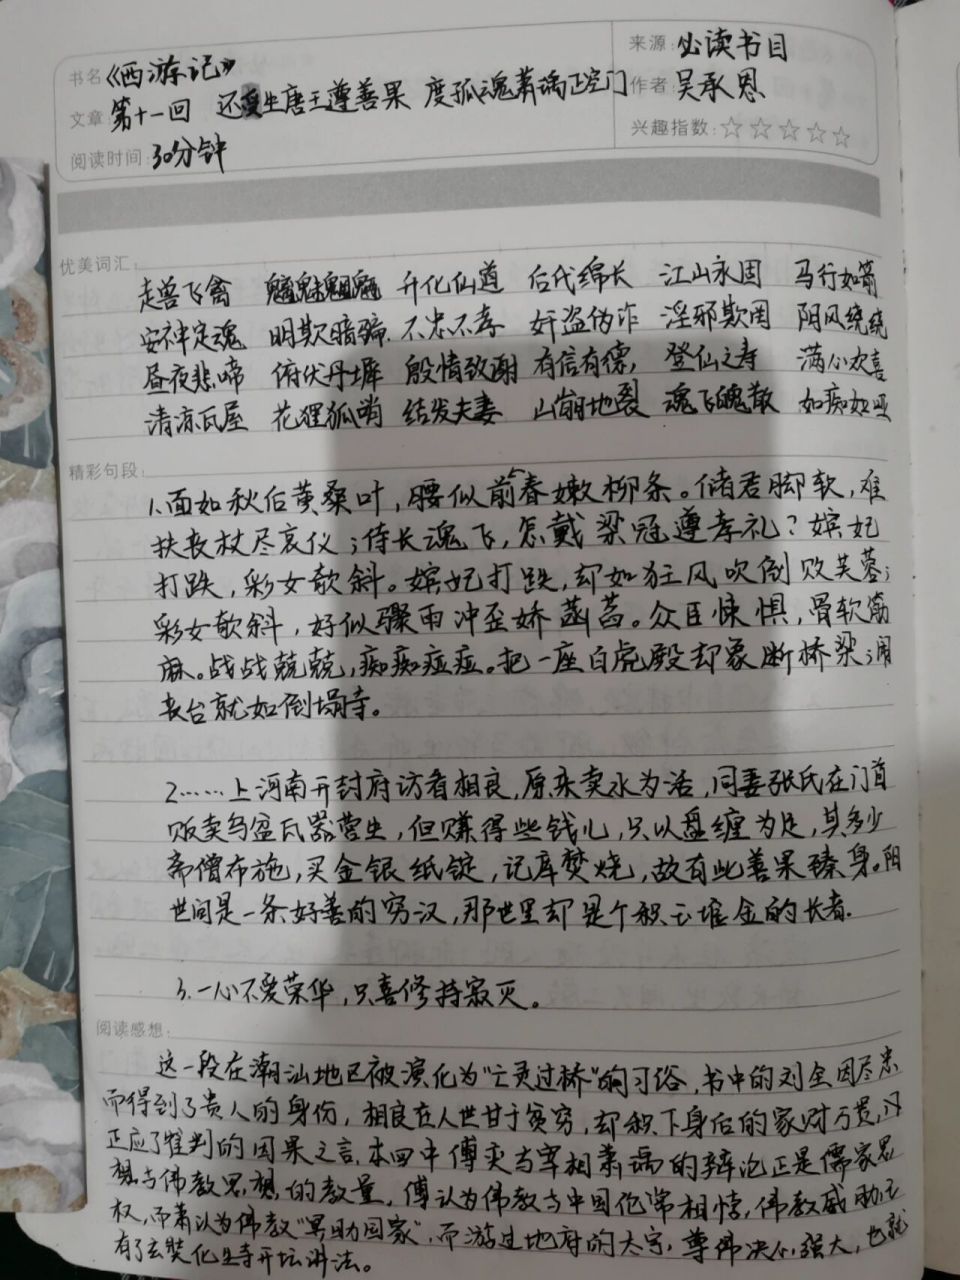 书名 《西游记》
来源: 必读书目
文章: 第十一回 还受生唐王尊善果 度孤魂萧瑀正空门
作者: 吴承恩
阅读时间: 30分钟
兴趣指数: ☆☆☆☆☆
优美词汇:
走兽飞禽 魑魅魍魉 升化仙道 后代绵长 江山永固 马行如箭
安神定魂 明欺暗骗 不忠不孝 奸盗伪诈 淫邪欺罔 阴风绕绕
昼夜悲啼 俯伏丹墀 殷情致谢 有信有德, 登仙之寿 满心欢喜
清凉瓦屋 花狸狐哨 结发夫妻 山崩地裂 魂飞魄散 如痴如哑
精彩句段:
1.面如秋后黄桑叶,腰似春前嫩柳条。储君脚软,难
扶丧杖尽哀仪;侍长魂飞,怎戴梁冠遵孝礼?嫔妃
打跌,彩女欹斜。嫔妃打跌,却如狂风吹倒败芙蓉;
彩女欹斜,好似骤雨冲歪娇菡萏。众臣悚惧,骨软筋
麻。战战兢兢,痴痴痖痖。把一座白虎殿却象断桥梁;闹
丧台就如倒塌寺。
2……上河南开封府访看相良,原来卖水为活,同妻张氏在门首
贩卖乌盆瓦器营生,但赚得些钱儿,只以盘缠为足,其多少
斋僧布施,买金银纸锭,记库焚烧,故有此善果臻身。阳
世间是一条好善的穷汉,那世里却是个积玉堆金的长者.
3.一心不爱荣华,只喜修持寂灭。
阅读感想:
这一段在潮汕地区被演化为“亡灵过桥”的习俗,书中的刘全因尽忠
而得到了贵人的身份,相良在人世甘于贫穷,却积下身后的家财万贯,
正应了崔判的因果之言.本回中傅奕与宰相萧瑀的辩论正是儒家思
想与佛教思想的教量,傅认为佛教与中国伦常相悖,佛教威胁王
权,而萧认为佛教“冥助国家”,而游过地府的太宗,尊佛决心强大,也就
有了玄奘化生寺开坛讲法。